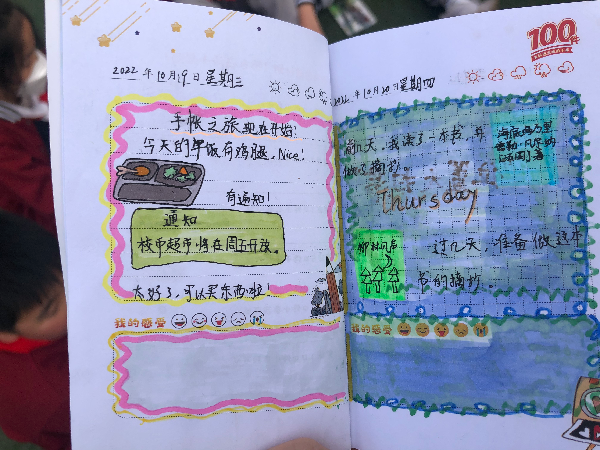 2022年10月19日星期三
手帐之旅现在开始!
今天的午饭有鸡腿,Nice!
有通知!
通知
校中超市将在周五开放。
太好了,可以买东西啦!
我的感受
100
2022年10月20日星期四
前几天,我读了一本书,并
做了摘抄。
Thursday
柳林风声
过几天,准备做这本
书的摘抄。
我的感受